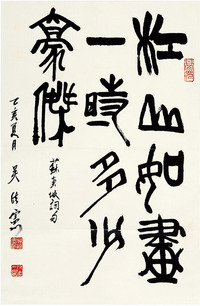 江山如畫
一時多少
豪傑
蘇東坡詞句
乙亥夏月 吳